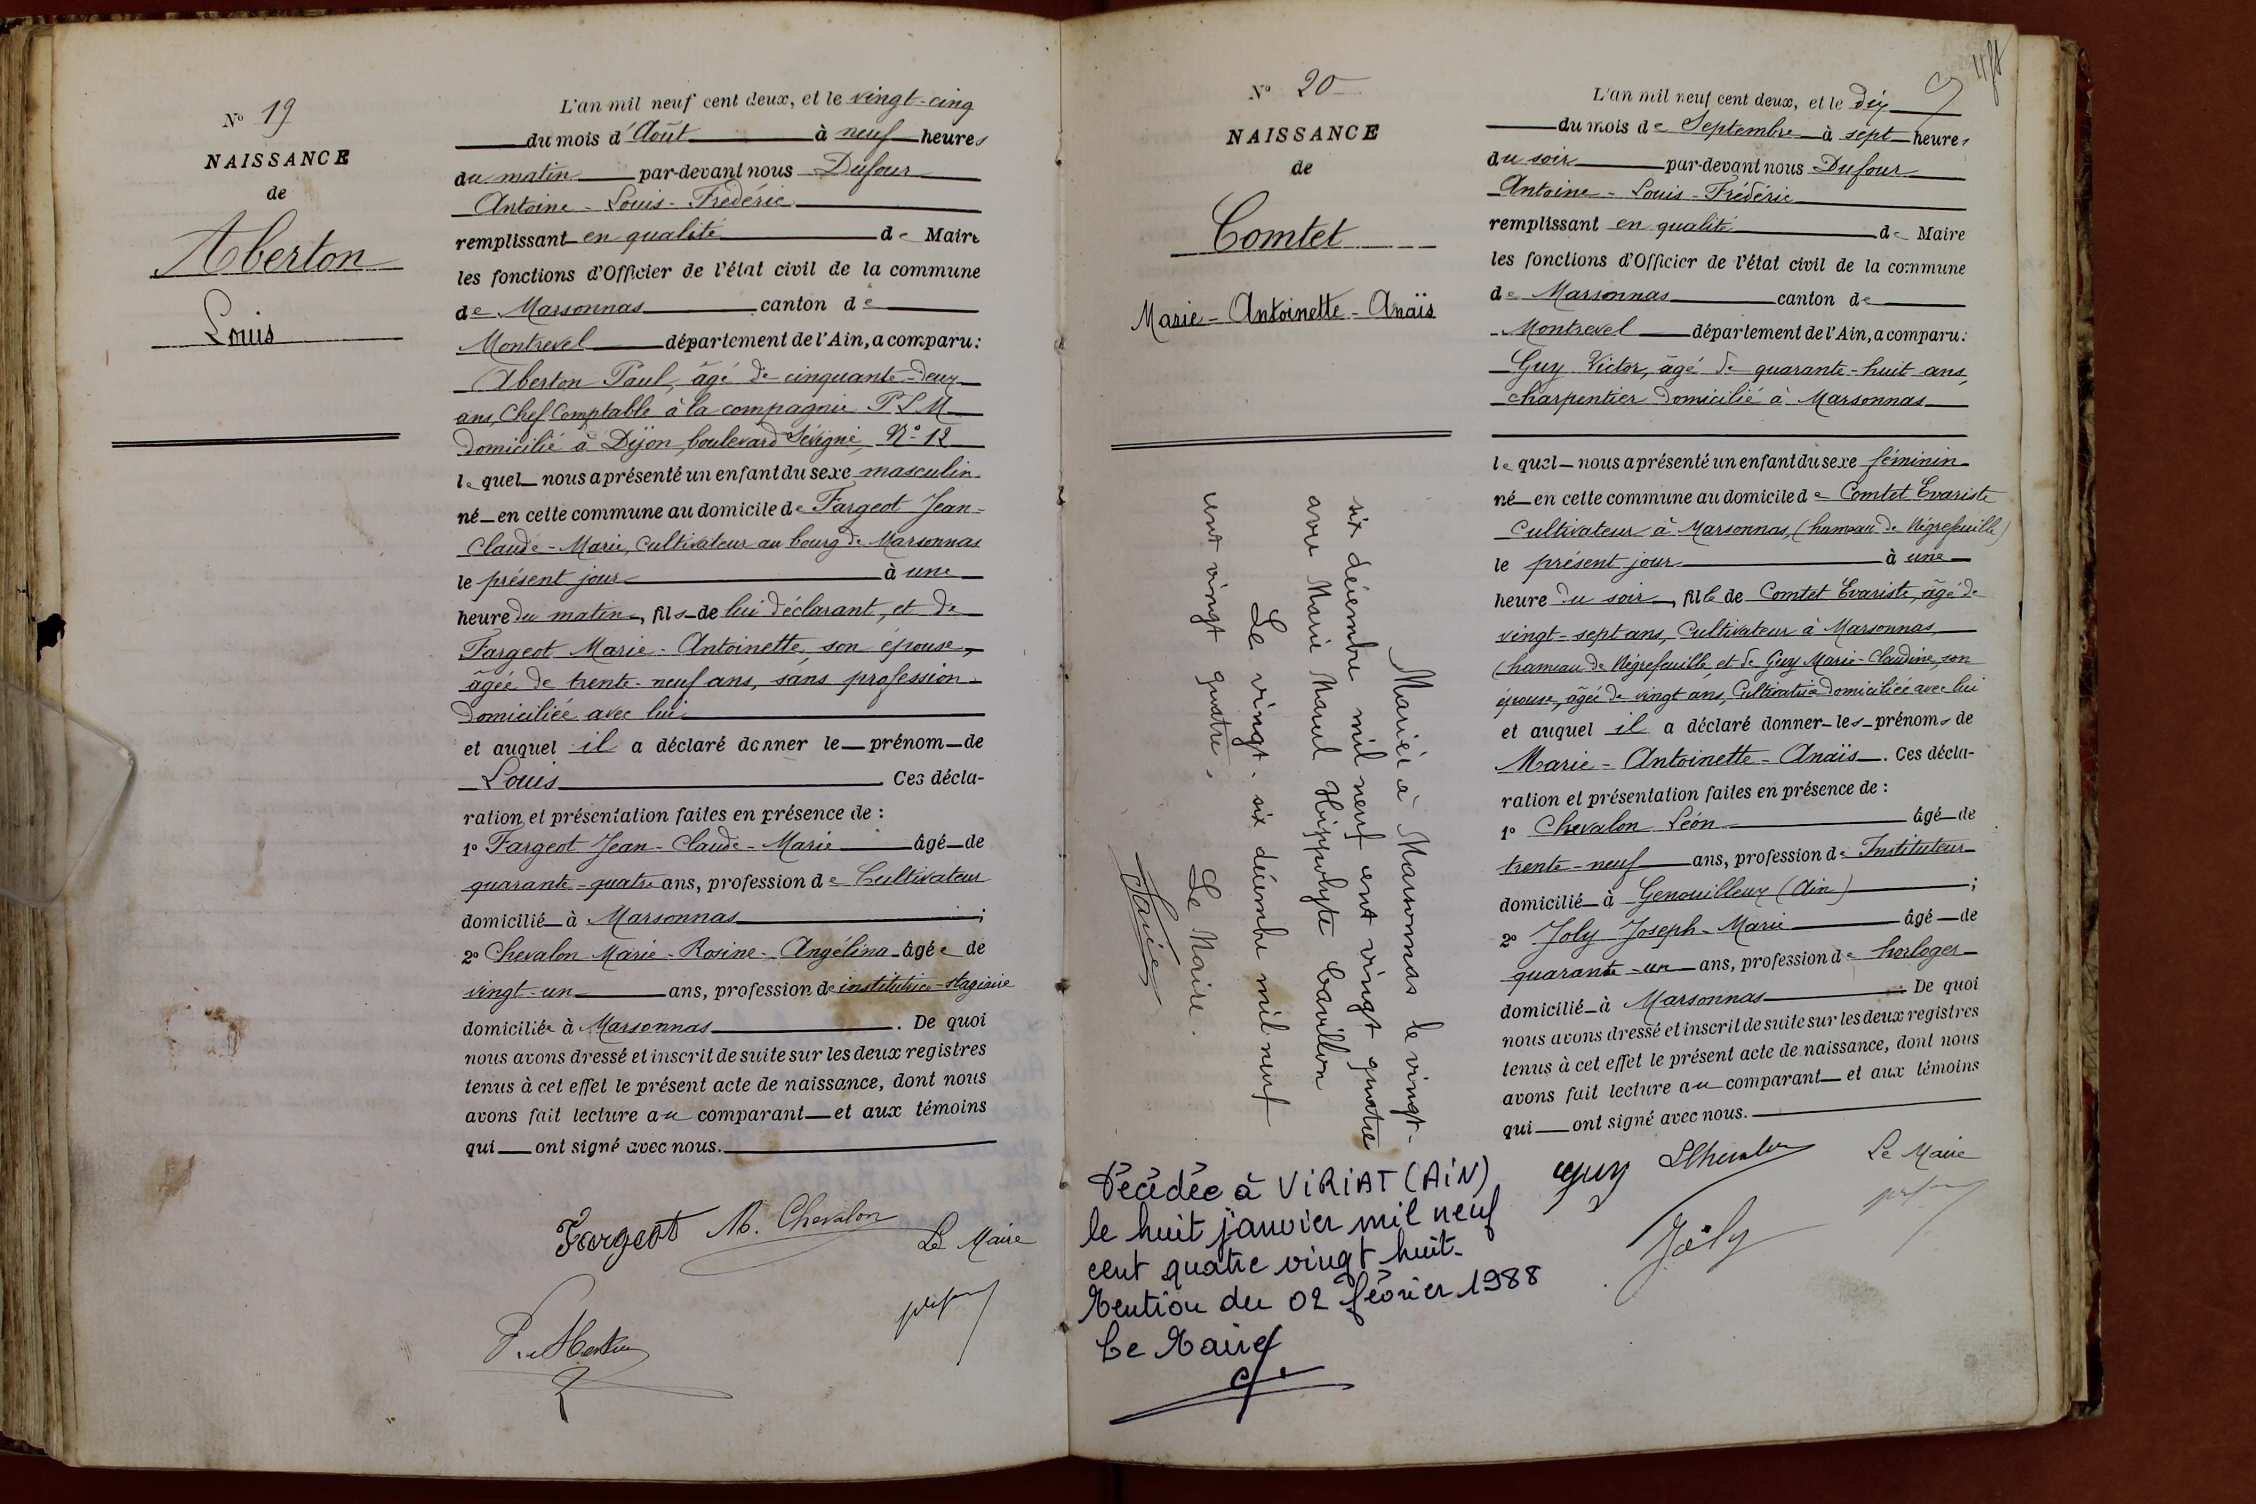 N° 19
NAISSANCE
de
Aberton
Louis
L'an mil neuf cent deux, et le vingt-cinq
du mois d'Août à neuf heures
du matin par-devant nous Dufour
Antoine-Louis-Frédéric
remplissant en qualité de Maire
les fonctions d'Officier de l'état civil de la commune
de Marsonnas canton de
Montrevel département de l'Ain, a comparu :
Aberton Paul, âgé de cinquante-deux
ans, Chef Comptable à la compagnie P L M
domicilié à Dijon, boulevard Sévigné, N° 12
lequel nous a présenté un enfant du sexe masculin
né en cette commune au domicile de Fargeot Jean-
Claude-Marie, Cultivateur au bourg de Marsonnas
le présent jour à une
heure du matin, fils de lui déclarant, et de
Fargeot Marie-Antoinette, son épouse,
âgée de trente-neuf ans, sans profession
domiciliée avec lui
et auquel il a déclaré donner le prénom de
Louis Ces décla-
ration et présentation faites en présence de :
1° Fargeot Jean-Claude-Marie âgé de
quarante-quatre ans, profession de Cultivateur
domicilié à Marsonnas ;
2° Chevalon Marie-Rosine-Angélina âgée de
vingt-un ans, profession de institutrice-stagiaire
domiciliée à Marsonnas . De quoi
nous avons dressé et inscrit de suite sur les deux registres
tenus à cet effet le présent acte de naissance, dont nous
avons fait lecture au comparant et aux témoins
qui ont signé avec nous.
Fargeot M. Chevalon Le Maire
P. Aberton
N° 20
NAISSANCE
de
Comtet
Marie-Antoinette-Anaïs
Mariée à Marsonnas le vingt-
six décembre mil neuf cent vingt quatre
avec Marie Marcel Hippolyte Cavillon
Le vingt-six décembre mil neuf
cent vingt quatre.
Le Maire.
Décédée à VIRIAT (AIN)
le huit janvier mil neuf
cent quatre vingt huit.
Mention du 02 février 1988
Le Maire
L'an mil neuf cent deux, et le dix
du mois de Septembre à sept heures
du soir par-devant nous Dufour
Antoine-Louis-Frédéric
remplissant en qualité de Maire
les fonctions d'Officier de l'état civil de la commune
de Marsonnas canton de
Montrevel département de l'Ain, a comparu :
Guy Victor, âgé de quarante-huit ans,
charpentier domicilié à Marsonnas
lequel nous a présenté un enfant du sexe féminin
né en cette commune au domicile de Comtet Evariste
Cultivateur à Marsonnas, (hameau de Nègrefeuille)
le présent jour à une
heure du soir, fille de Comtet Evariste, âgé de
vingt-sept ans, Cultivateur à Marsonnas
(hameau de Nègrefeuille, et de Guy Marie-Claudine, son
épouse, âgée de vingt ans, Cultivatrice domiciliée avec lui
et auquel il a déclaré donner les prénoms de
Marie-Antoinette-Anaïs. Ces décla-
ration et présentation faites en présence de :
1° Chevalon Léon âgé de
trente-neuf ans, profession de Instituteur
domicilié à Genouilleux (Ain) ;
2° Joly Joseph-Marie âgé de
quarante-un ans, profession de horloger
domicilié à Marsonnas . De quoi
nous avons dressé et inscrit de suite sur les deux registres
tenus à cet effet le présent acte de naissance, dont nous
avons fait lecture au comparant et aux témoins
qui ont signé avec nous.
Guy LChevalon Le Maire
Joly